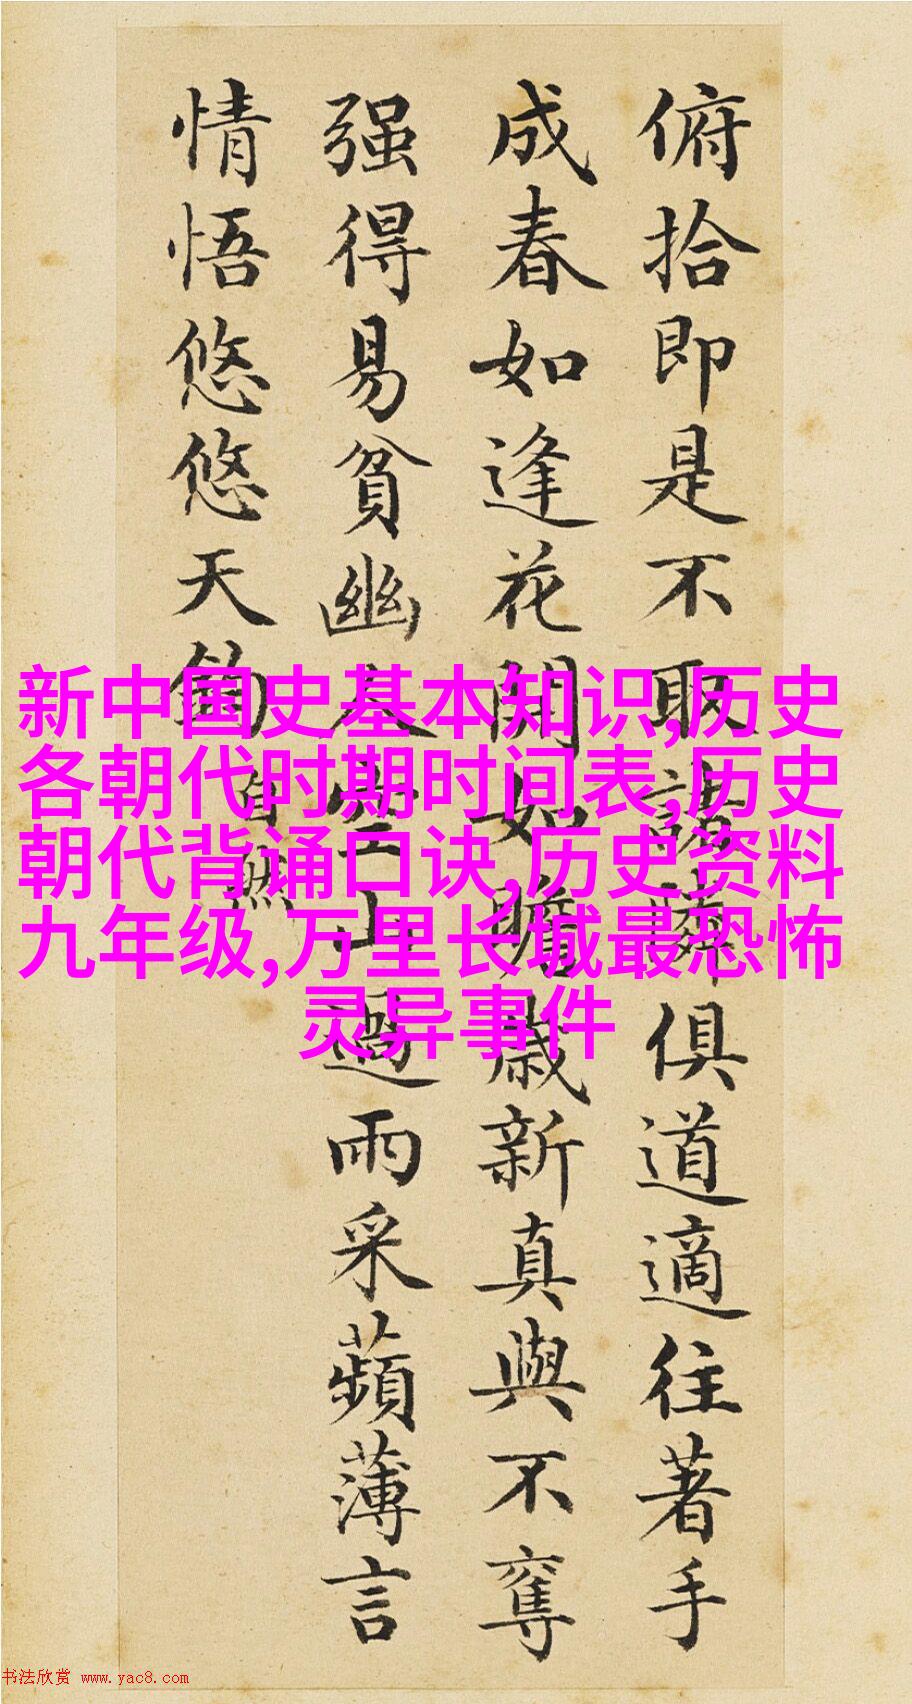 俯拾即是不取諸鄰俱道適往著手
成春如逢花開如瞻歲新真與不奪
强得易貧幽人空山過雨采蘋薄言
情悟悠悠天鈞
自然
新中国史基本知识,历史
各朝代时期时间表,历史
朝代背诵口诀,历史资料
九年级,万里长城最恐怖
灵异事件
书法欣赏 www.yac8.com